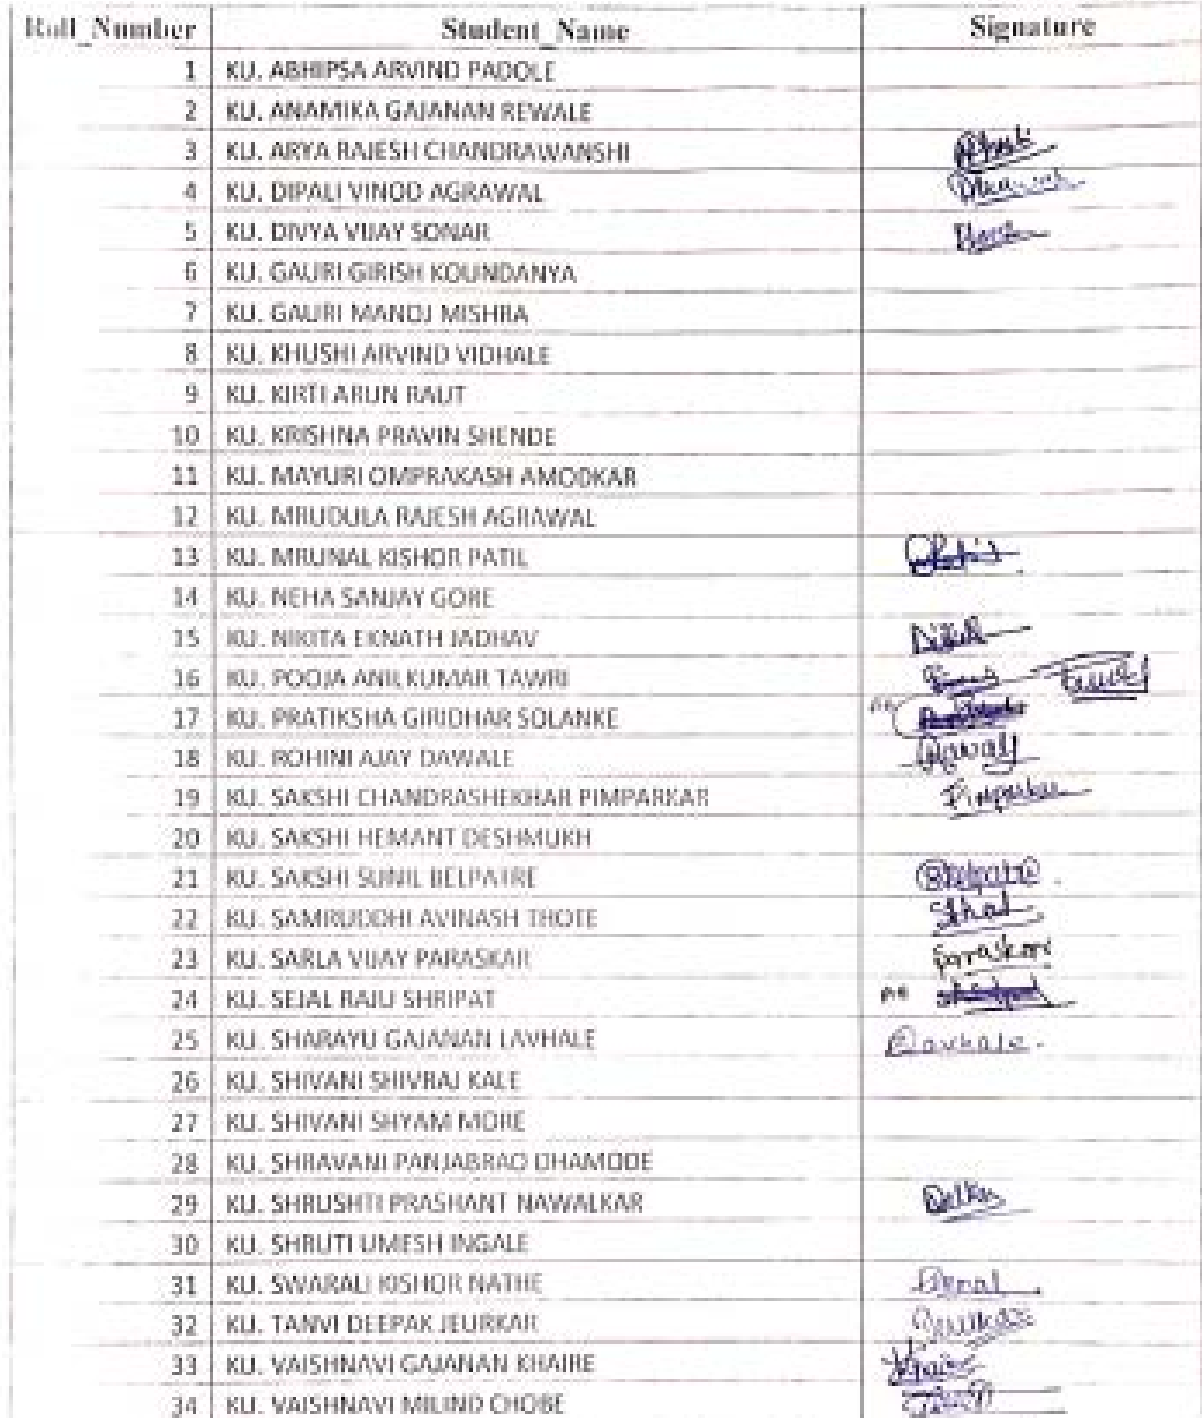 Roll_Number Student_Name Signature
1 KU. ABHIPSA ARVIND PADOLE
2 KU. ANAMIKA GAJANAN REWALE
3 KU. ARYA RAJESH CHANDRAWANSHI
4 KU. DIPALI VINOD AGRAWAL
5 KU. DIVYA VIJAY SONAR
6 KU. GAURI GIRISH KOUNDANYA
7 KU. GAURI MANOJ MISHRA
8 KU. KHUSHI ARVIND VIDHALE
9 KU. KIRTI ARUN RAUT
10 KU. KRISHNA PRAVIN SHENDE
11 KU. MAYURI OMPRAKASH AMODKAR
12 KU. MRUDULA RAJESH AGRAWAL
13 KU. MRUNAL KISHOR PATIL
14 KU. NEHA SANJAY GORE
15 KU. NIKITA EKNATH JADHAV
16 KU. POOJA ANILKUMAR TAWRI
17 KU. PRATIKSHA GIRIDHAR SOLANKE
18 KU. ROHINI AJAY DAWALE
19 KU. SAKSHI CHANDRASHEKHAR PIMPARKAR Pimparkar
20 KU. SAKSHI HEMANT DESHMUKH
21 KU. SAKSHI SUNIL BELPATRE
22 KU. SAMRUDDHI AVINASH THOTE
23 KU. SARLA VIJAY PARASKAR
24 KU. SEJAL RAJU SHRIPAT
25 KU. SHARAYU GAJANAN LAVHALE
26 KU. SHIVANI SHIVRAJ KALE
27 KU. SHIVANI SHYAM MORE
28 KU. SHRAVANI PANJABRAO DHAMODE
29 KU. SHRUSHTI PRASHANT NAWALKAR
30 KU. SHRUTI UMESH INGALE
31 KU. SWARALI KISHOR NATHE
32 KU. TANVI DEEPAK JEURKAR
33 KU. VAISHNAVI GAJANAN KHAIRE
34 KU. VAISHNAVI MILIND CHOBE